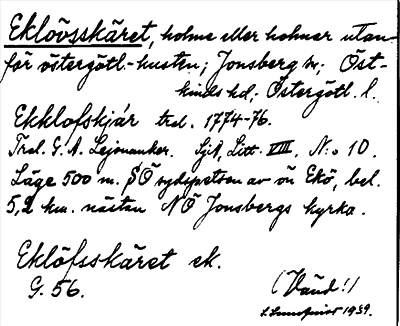 Eklövsskäret, holme eller holmar utan-
för östergötl.-kusten; Jonsberg sn; Öst-
kinds hd; Östergötl. l.
Ekklofskjär trol. 1774-76.
Trol. G. A. Lejonanker. SjA, Litt. VIII. N:o 10.
Läge 500 m. SÖ sydspetsen av ön Ekö, bel.
5,2 km. nästan NÖ Jonsbergs kyrka.
Eklöfsskäret ek.
G. 56.
(Vänd!)
1939.